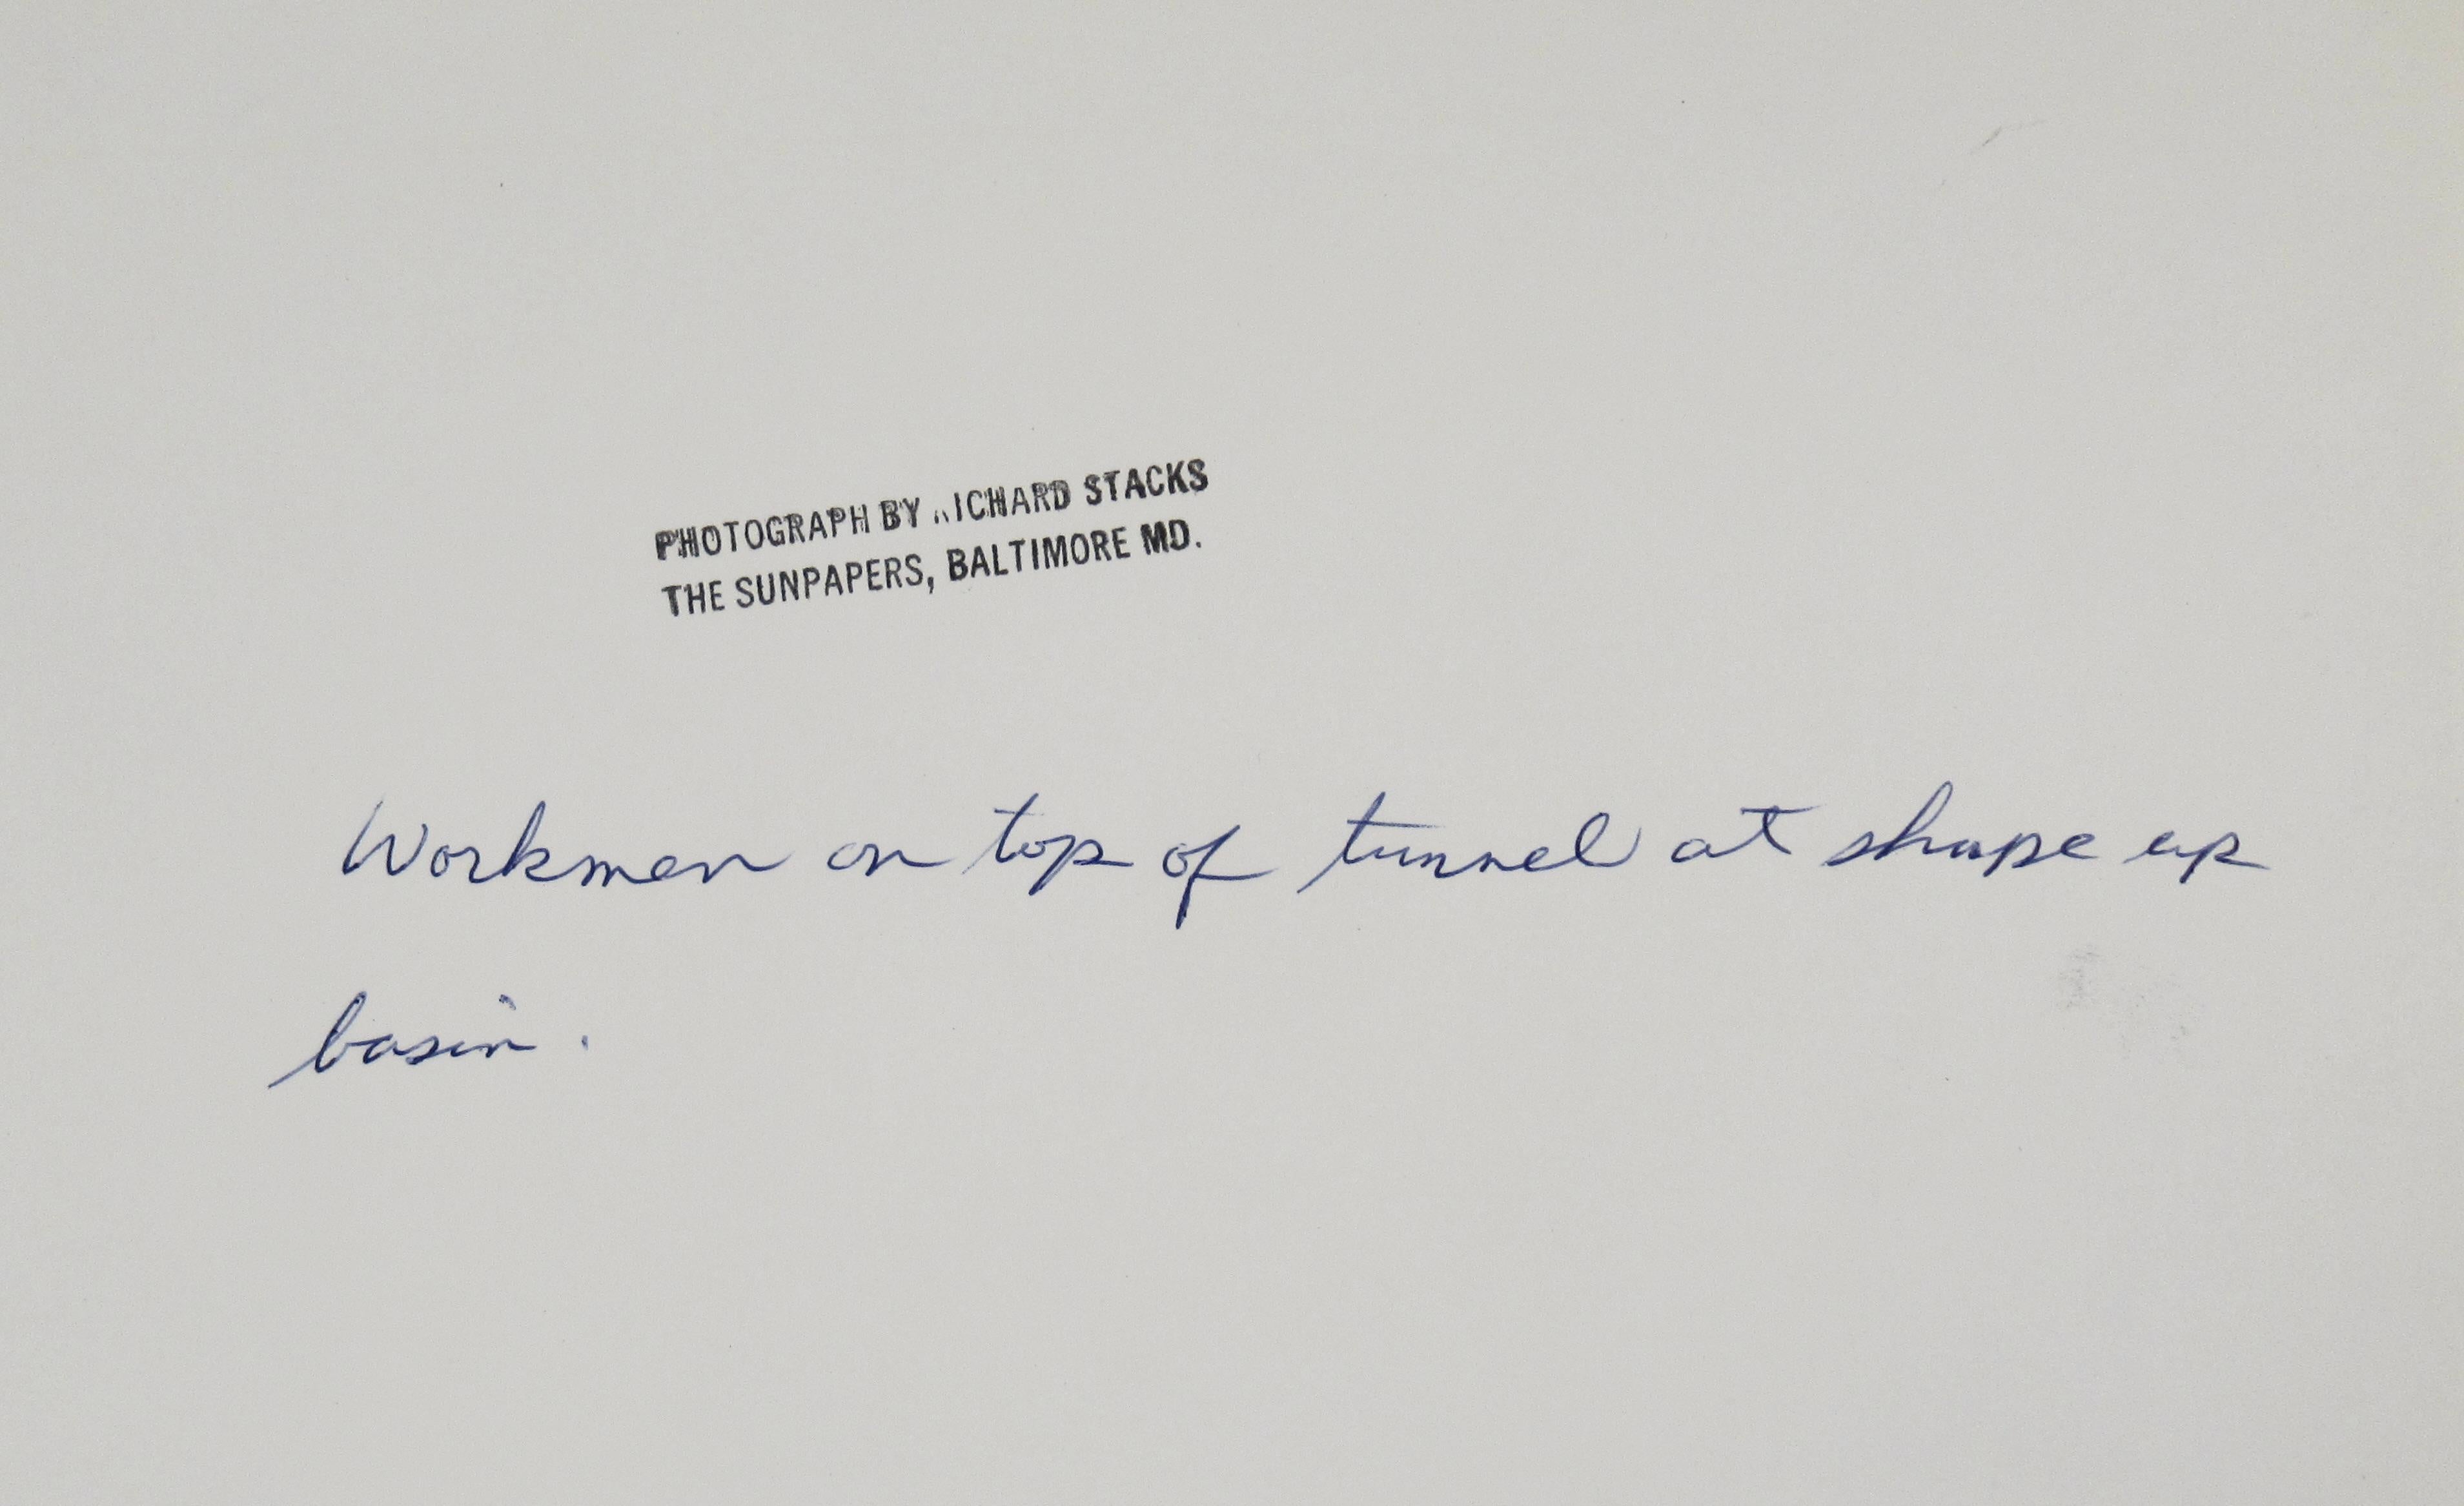 PHOTOGRAPH BY RICHARD STACKS
THE SUNPAPERS, BALTIMORE MD.
Workmen on top of tunnel at shape up
basin.